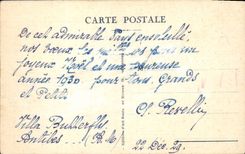 CARTE POSTALE
De cet admirable Pays ensoleillé
nos vœux les meilleurs pour un
joyeux Noël et une heureuse
année 1930 pour tous. Grands
et Petits
C. Revelli
Villa Butterfly
Antibes
22 Déc. 29